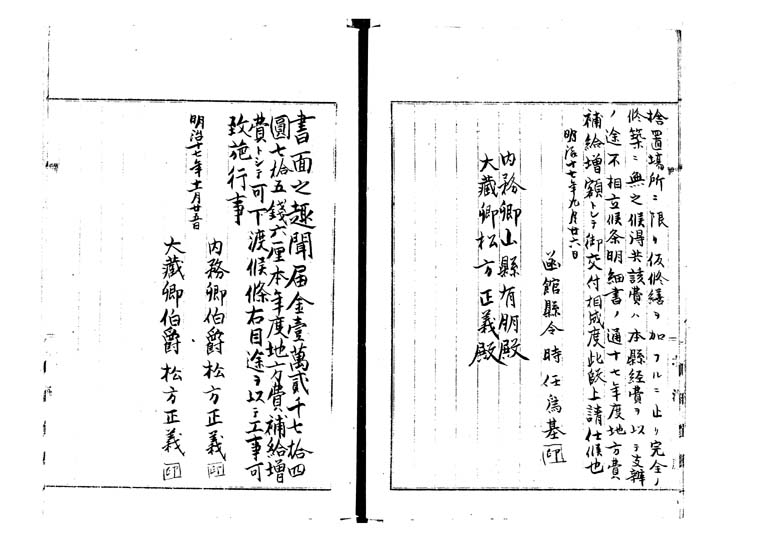 捨置場所ニ限リ仮修繕ヲ加フルニ止リ完全ノ
修築ニ無之候得共該費ハ本縣経費ヲ以テ支辨
ノ途不相立候条明細書ノ通十七年度地方費
補給増額トシテ御交付相成度此段上請仕候也
明治十七年九月廿六日
函館縣令時任為基 印
内務卿山縣有朋殿
大藏卿松方正義殿
書面之趣聞届金壹萬貳千七拾四
圓七拾五錢六厘本年度地方費補給増
費トシテ可下渡候條右目途ヲ以テ工事可
致施行事
明治十七年十一月廿五日
内務卿伯爵松方正義 印
大藏卿伯爵松方正義 印